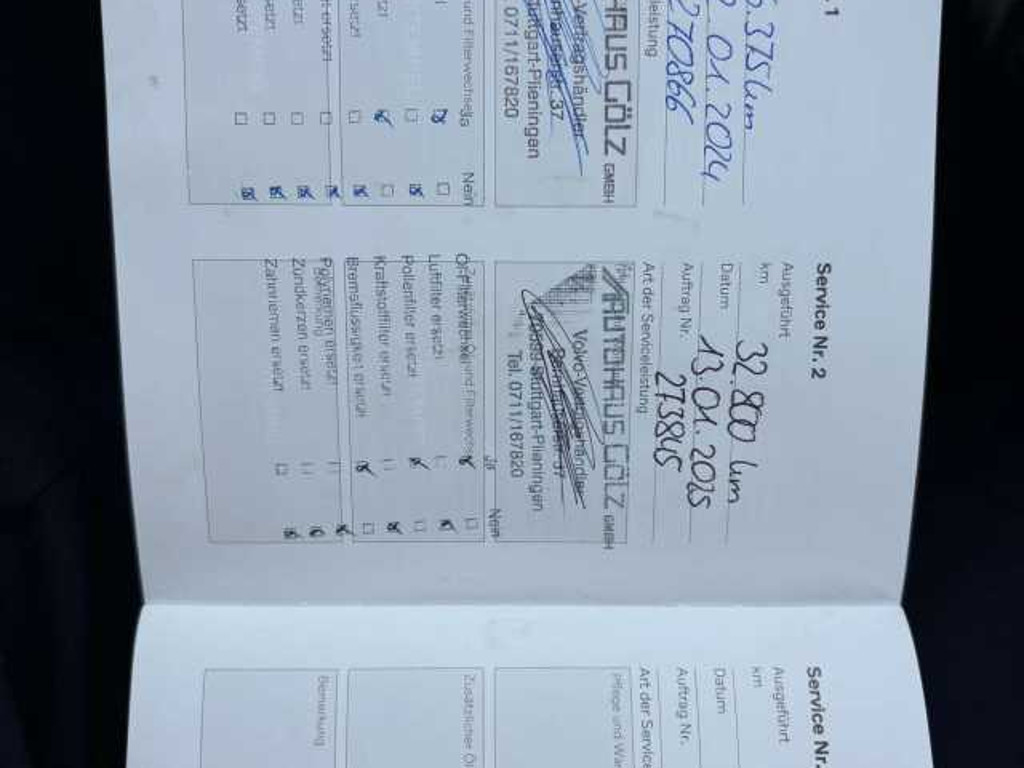 .375 km
01.2024
270866
leistung
HAUS GÖLZ GMBH
Vertragshändler
37
Stuttgart-Plieningen
0711/167820
und Filterwechsel
Ja
Nein
ersetzt
Service Nr. 2
Ausgeführt
km 32.800 km
Datum 13.01.2025
Auftrag Nr. 273845
Art der Serviceleistung
AUTOHAUS GÖLZ GMBH
Volvo-Vertragshändler
Stuttgart-Plieningen
Tel. 0711/167820
Ja Nein
Öl- und Filterwechsel
Luftfilter ersetzt
Pollenfilter ersetzt
Kraftstofffilter ersetzt
Bremsflüssigkeit ersetzt
Bemerkung
Zündkerzen ersetzt
Zahnriemen ersetzt
Service Nr.
Ausgeführt
km
Datum
Auftrag Nr.
Art der Service
Pflege und War
Zusätzlicher Öl
Bemerkung